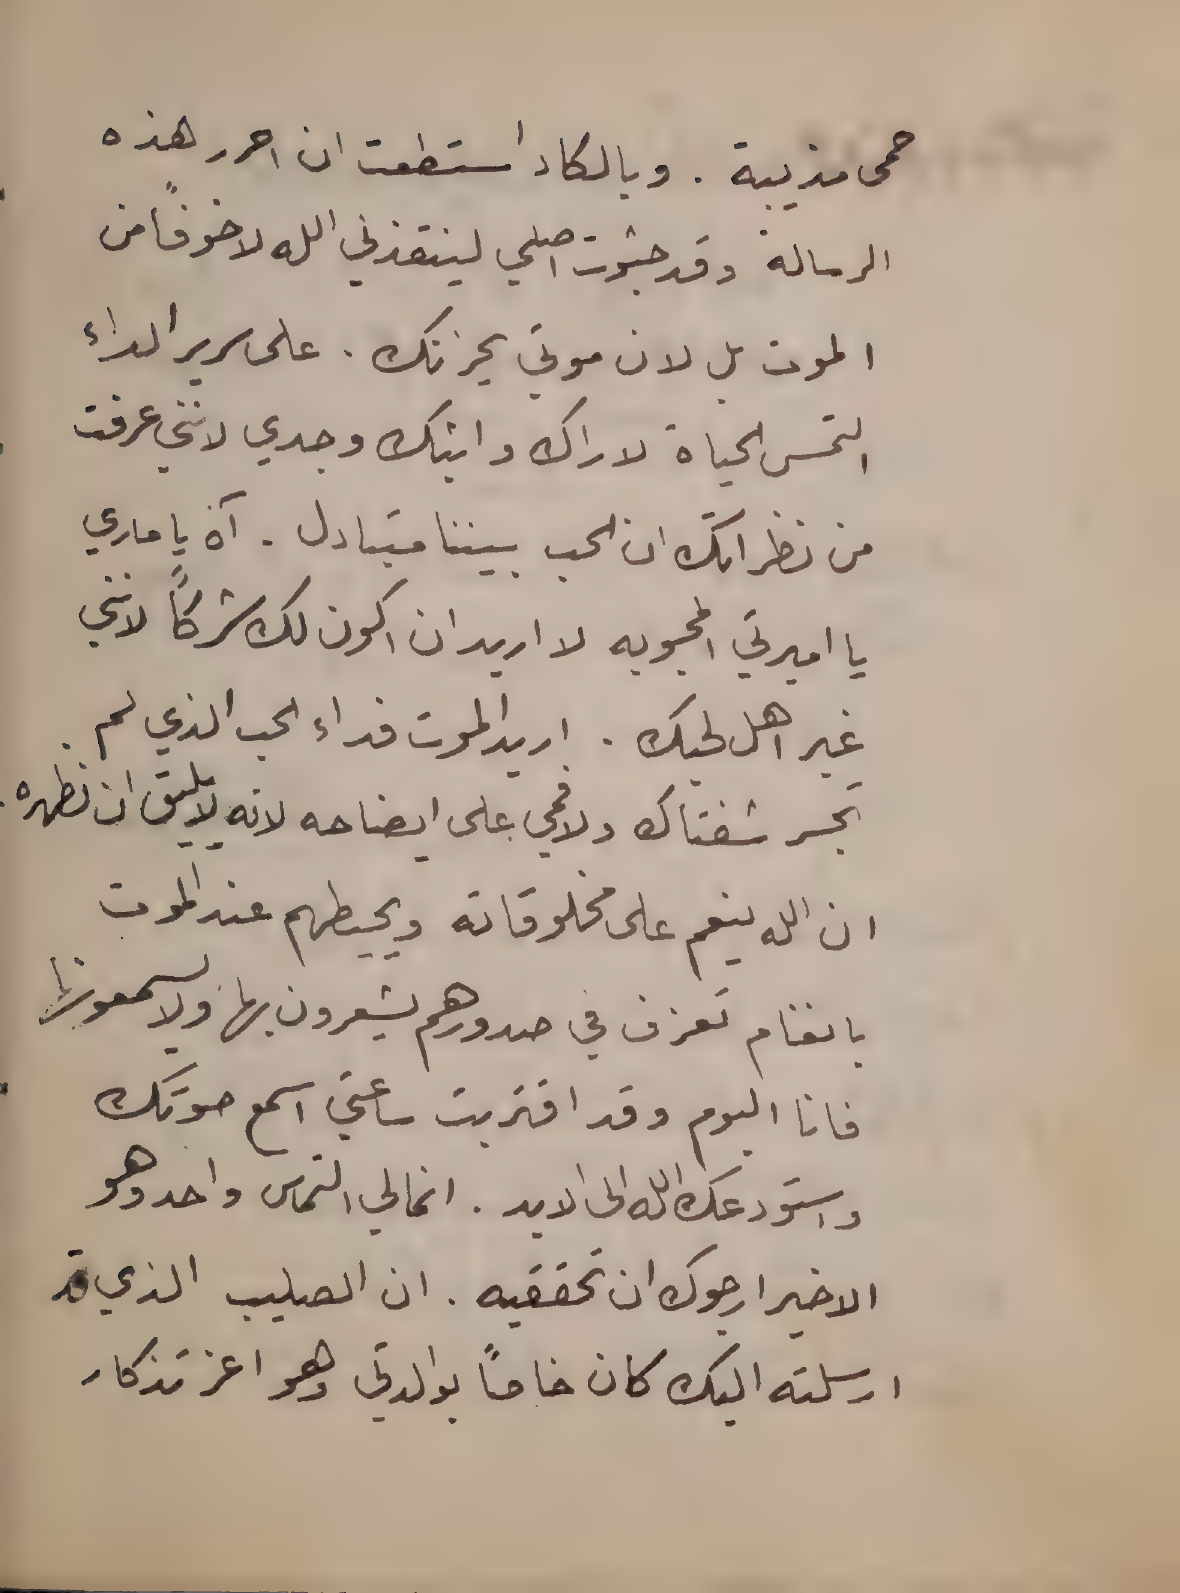 حمى مذيبة . وبالكاد استطعت ان احرر هذه
الرسالة وقد جثوت اصلي لينقذني الله لا خوفاً من
الموت بل لان موتي يحزنك . على سرير الداء
التمس الحياة لاراك وابثك وجدي لانني عرفت
من نظراتك ان الحب بيننا متبادل . آه يا ماري
يا اميرتي المحبوبه لا اريد ان اكون لك شركاً لانني
غير اهل لحبك . اريد الموت فداء الحب الذي لم
تجسر شفتاك ولا فمي على ايضاحه لانه لا يليق ان نظهره .
ان الله ينعم على مخلوقاته ويحيطهم عند الموت
بانغام تعزف في صدورهم يشعرون بها ولا يسمعونها
فانا اليوم وقد اقتربت ساعتي اسمع صوتك
واستودعك الله الى الابد . انما لي التماس واحد وهو
الاخير ارجوك ان تحققيه . ان الصليب الذي قد
ارسلته اليك كان خاصاً بوالدتي وهو اعز تذكار